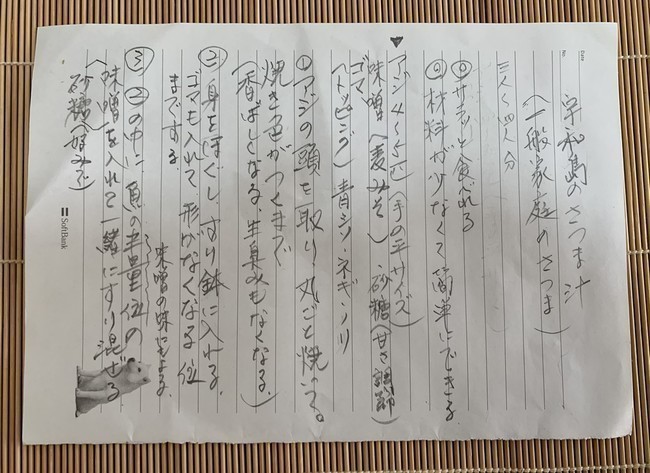 宇和島のさつま汁
（一般家庭のさつま）
三人〜四人分
◎サラッと食べれる
◎材料が少なくて簡単にできる
アジ4〜5匹（手の平サイズ）
味噌（麦みそ）砂糖（甘さ調節）
ゴマ
（トッピング）青シソ・ネギ・ノリ
①アジの頭を取り、丸ごと焼く。
焼き色がつくまで
（香ばしくなる、生臭みもなくなる）
②身をほぐしすり鉢に入れる。
ゴマも入れて形がなくなる位
までする
味噌の味にもよる
③②の中に魚の半量位の
味噌を入れて一緒にすり混ぜる
砂糖（好みで）
Date
No.
SoftBank